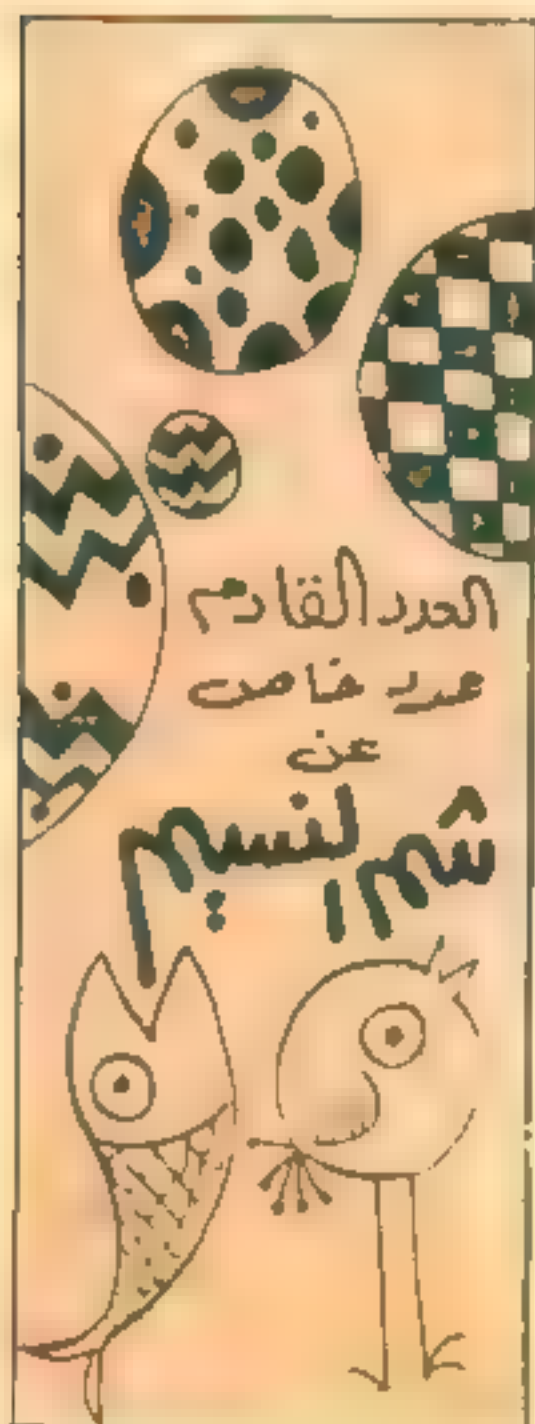 العدد القادم
عدد خاص
عن
شم النسيم